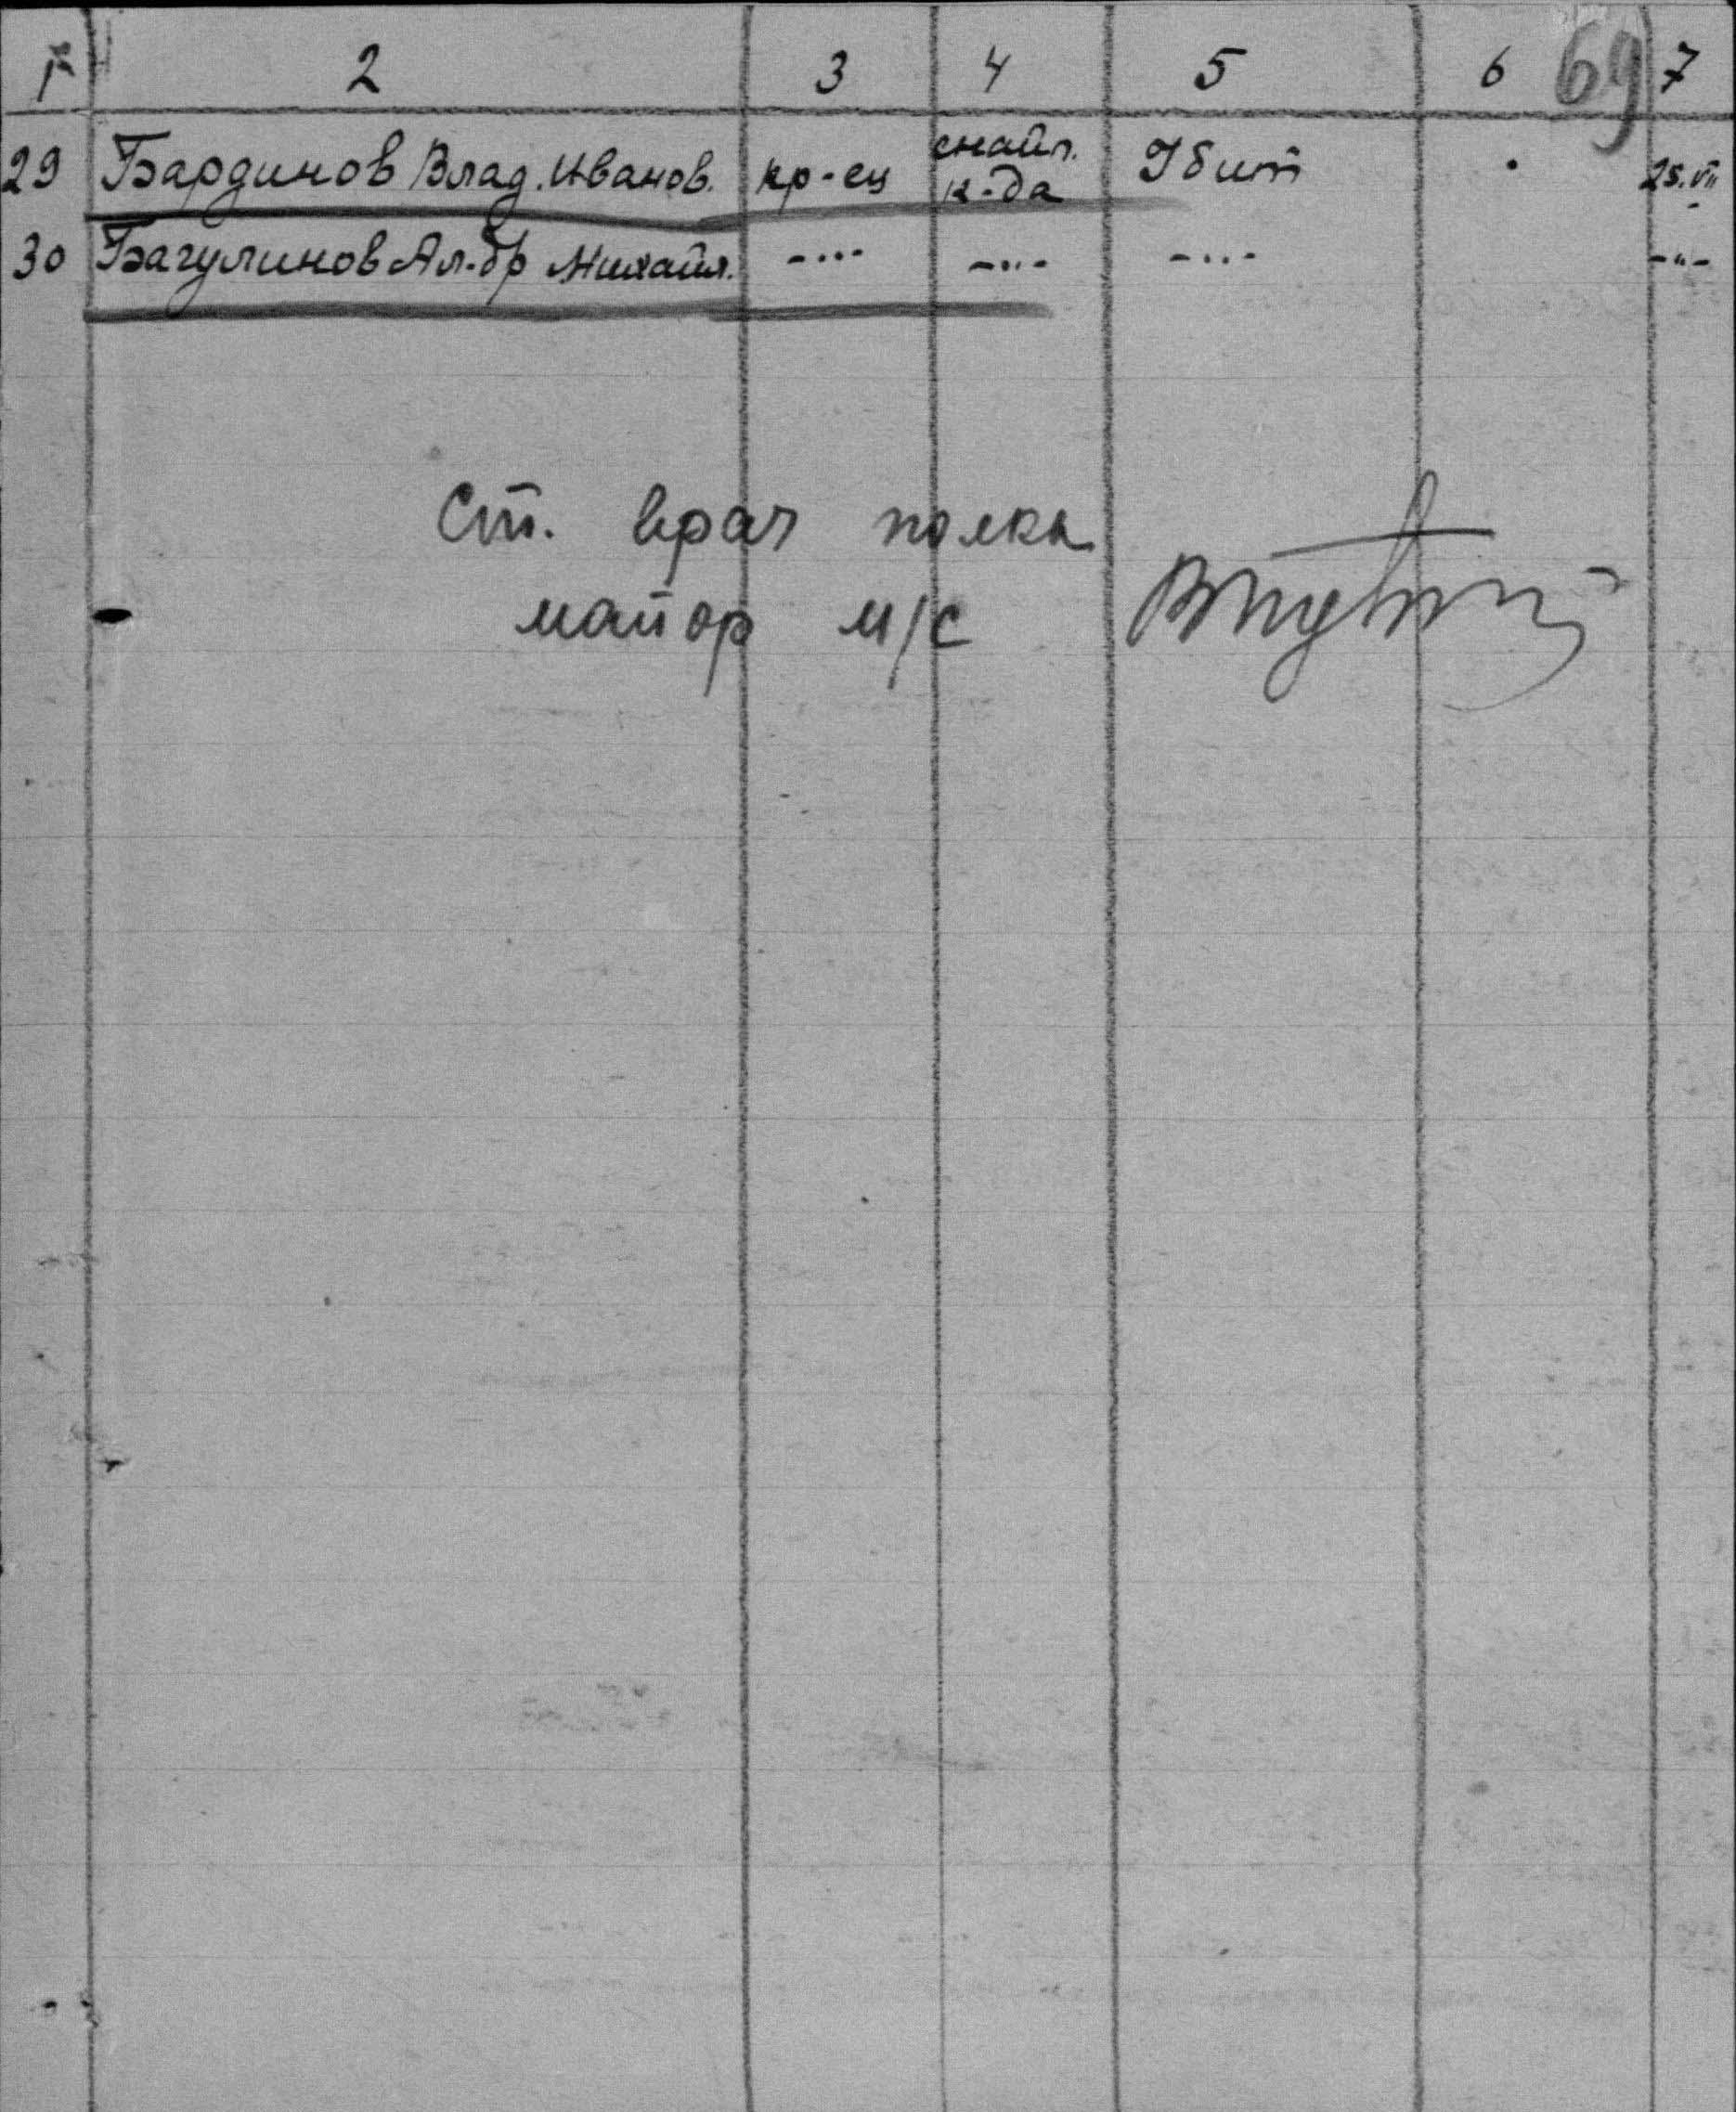 1 2 3 4 5 6 69 7
29 Бардинов Влад. Иванов. кр-ец снайп. к-да Убит 25.VII
30 Багулинов Ал-др Михайл. -"- -"- -"- -"-
Ст. врач полка
майор м/с